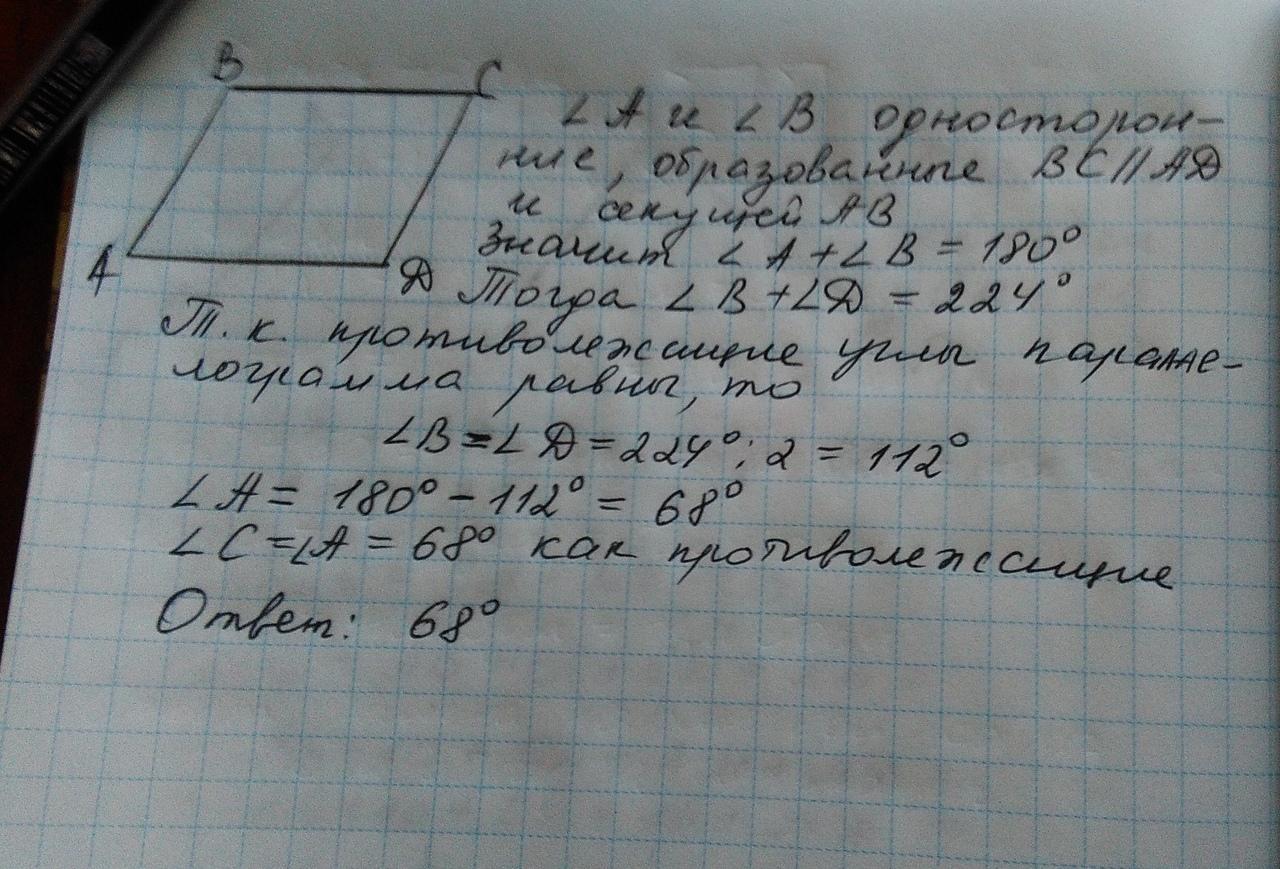 B
C
A
D
∠A и ∠B односторон-
ние, образованные BC∥AD
и секущей AB
Значит ∠A+∠B=180°
Тогда ∠B+∠D=224°
Т.к. противолежащие углы паралле-
лограмма равны, то
∠B=∠D=224°:2=112°
∠A=180°-112°=68°
∠C=∠A=68° как противолежащие
Ответ: 68°